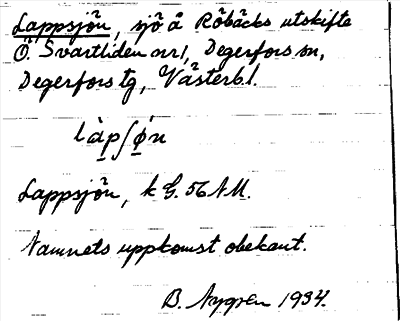 Lappsjön, sjö å Röbäcks utskifte
Ö. Svartliden nr 1, Degerfors sn,
Degerfors tg, Västerb. l.
làpʃø̀n
Lappsjön, k G. 56 NM.
Namnets uppkomst obekant.
B. Nygren 1934.